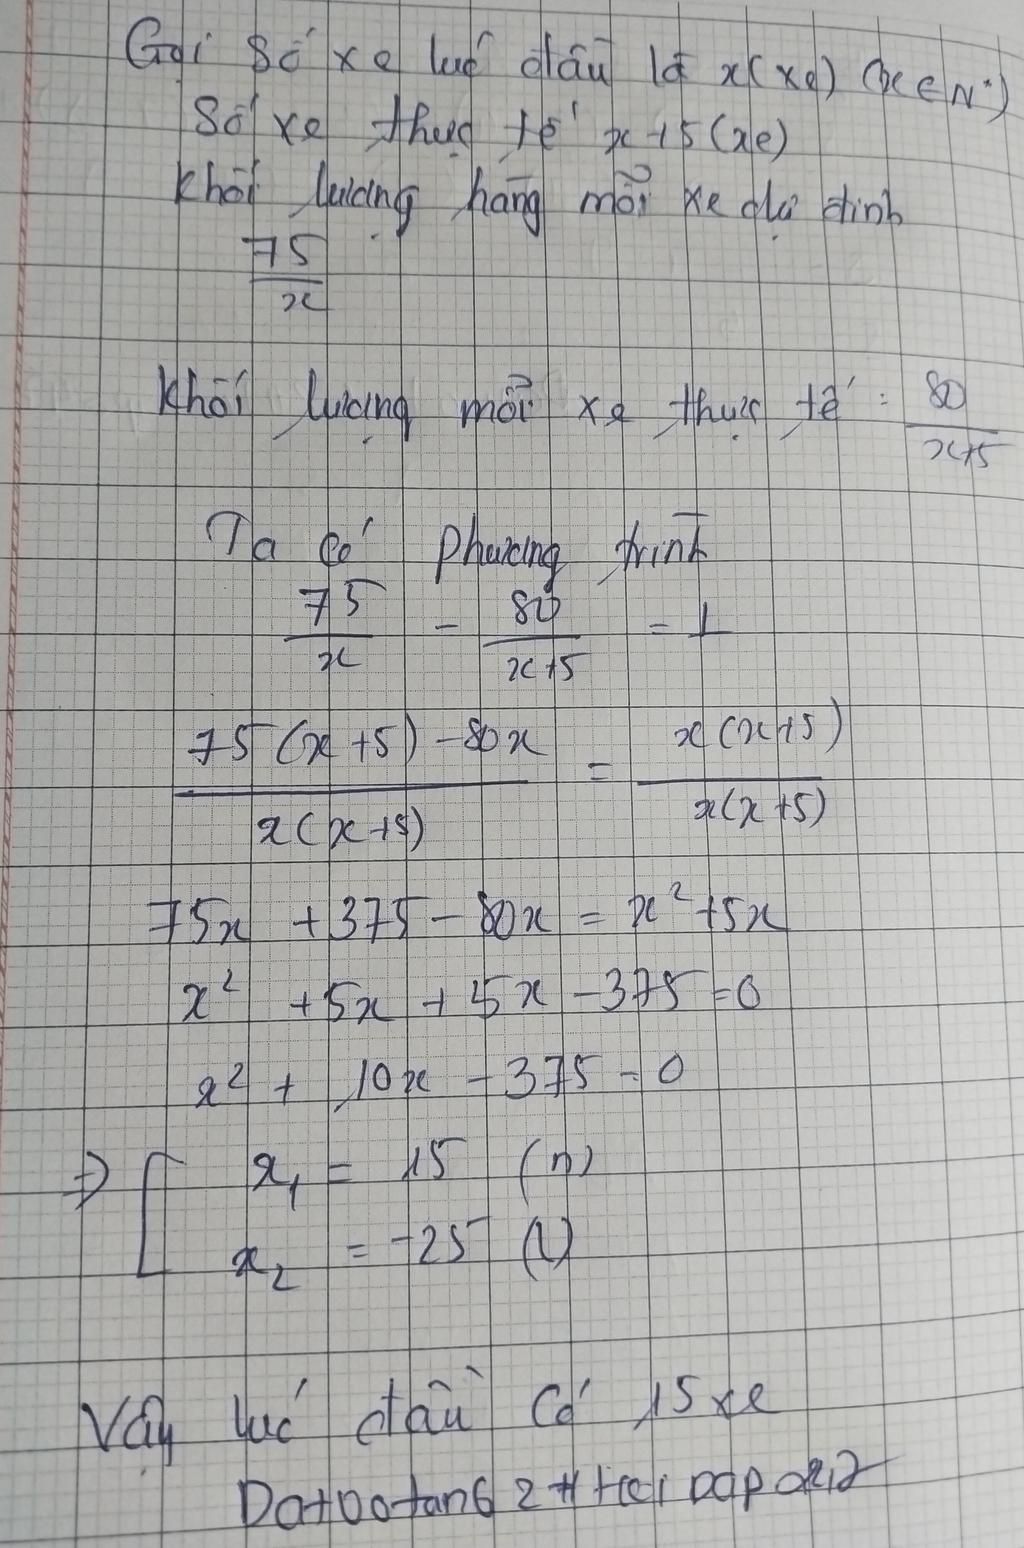 Gọi số xe lúc đầu là x(xe) (x ∈ N*)
Số xe thực tế x+5(xe)
Khối lượng hàng mỗi xe dự định
75/x
Khối lượng mỗi xe thực tế: 80/(x+5)
Ta có phương trình
75/x - 80/(x+5) = 1
(75(x+5)-80x)/(x(x+5)) = (x(x+5))/(x(x+5))
75x + 375 - 80x = x² + 5x
x² + 5x + 5x - 375 = 0
x² + 10x - 375 = 0
⇒ [ x₁ = 15 (n)
x₂ = -25 (l)
Vậy lúc đầu có 15 xe